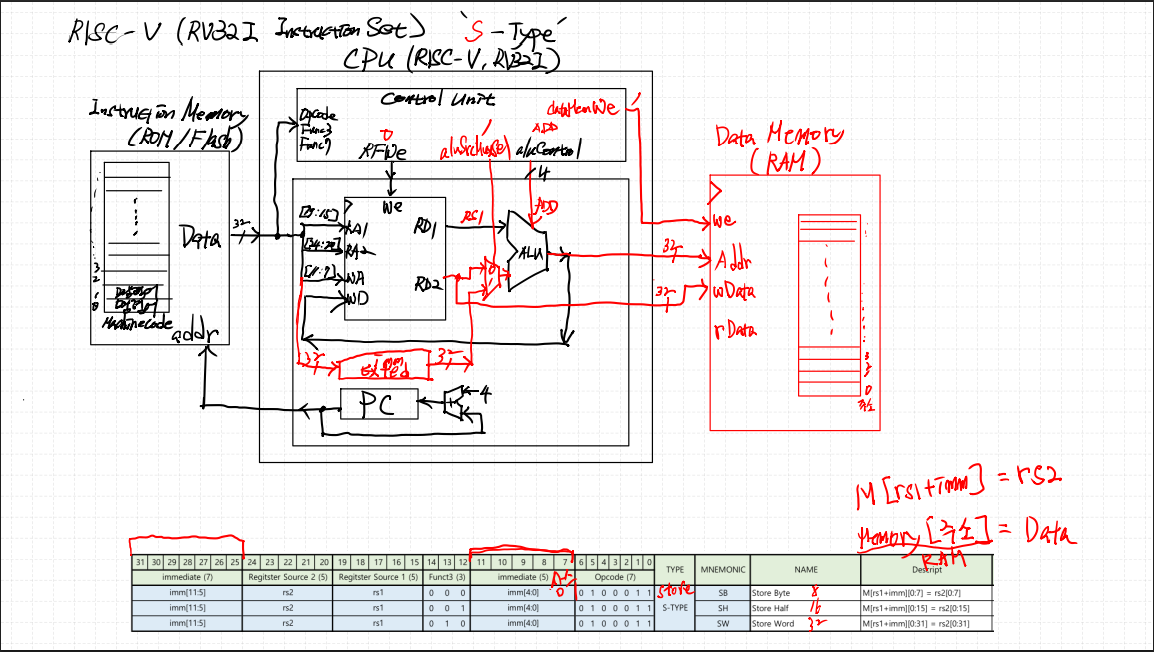 RISC-V (RV32I Instruction Set) 'S-Type'
CPU (RISC-V, RV32I)
Instruction Memory
(ROM/Flash)
Control Unit
Opcode
Func3
Func7
0
RFWe
1
aluSrcMuxSel
ADD
aluControl
dataMemWe
1
4
Data Memory
(RAM)
Data
32
3
2
1
0
MachineCode
addr
[19:15]
[24:20]
[11:7]
RA1
RA2
WA
WD
We
RD1
RD2
RS1
ADD
ALU
0
1
32
32
32
32
we
Addr
wData
rData
3
2
0
주소
PC
+
4
M[rs1+imm] = rs2
Memory [주소] = Data
RAM
31 30 29 28 27 26 25 24 23 22 21 20 19 18 17 16 15 14 13 12 11 10 9 8 7 6 5 4 3 2 1 0 TYPE MNEMONIC NAME Descript
immediate (7) Regitster Source 2 (5) Regitster Source 1 (5) Funct3 (3) immediate (5) Opcode (7)
imm[11:5] rs2 rs1 0 0 0 imm[4:0] 0 1 0 0 0 1 1 store SB Store Byte 8 M[rs1+imm][0:7] = rs2[0:7]
imm[11:5] rs2 rs1 0 0 1 imm[4:0] 0 1 0 0 0 1 1 S-TYPE SH Store Half 16 M[rs1+imm][0:15] = rs2[0:15]
imm[11:5] rs2 rs1 0 1 0 imm[4:0] 0 1 0 0 0 1 1 SW Store Word 32 M[rs1+imm][0:31] = rs2[0:31]